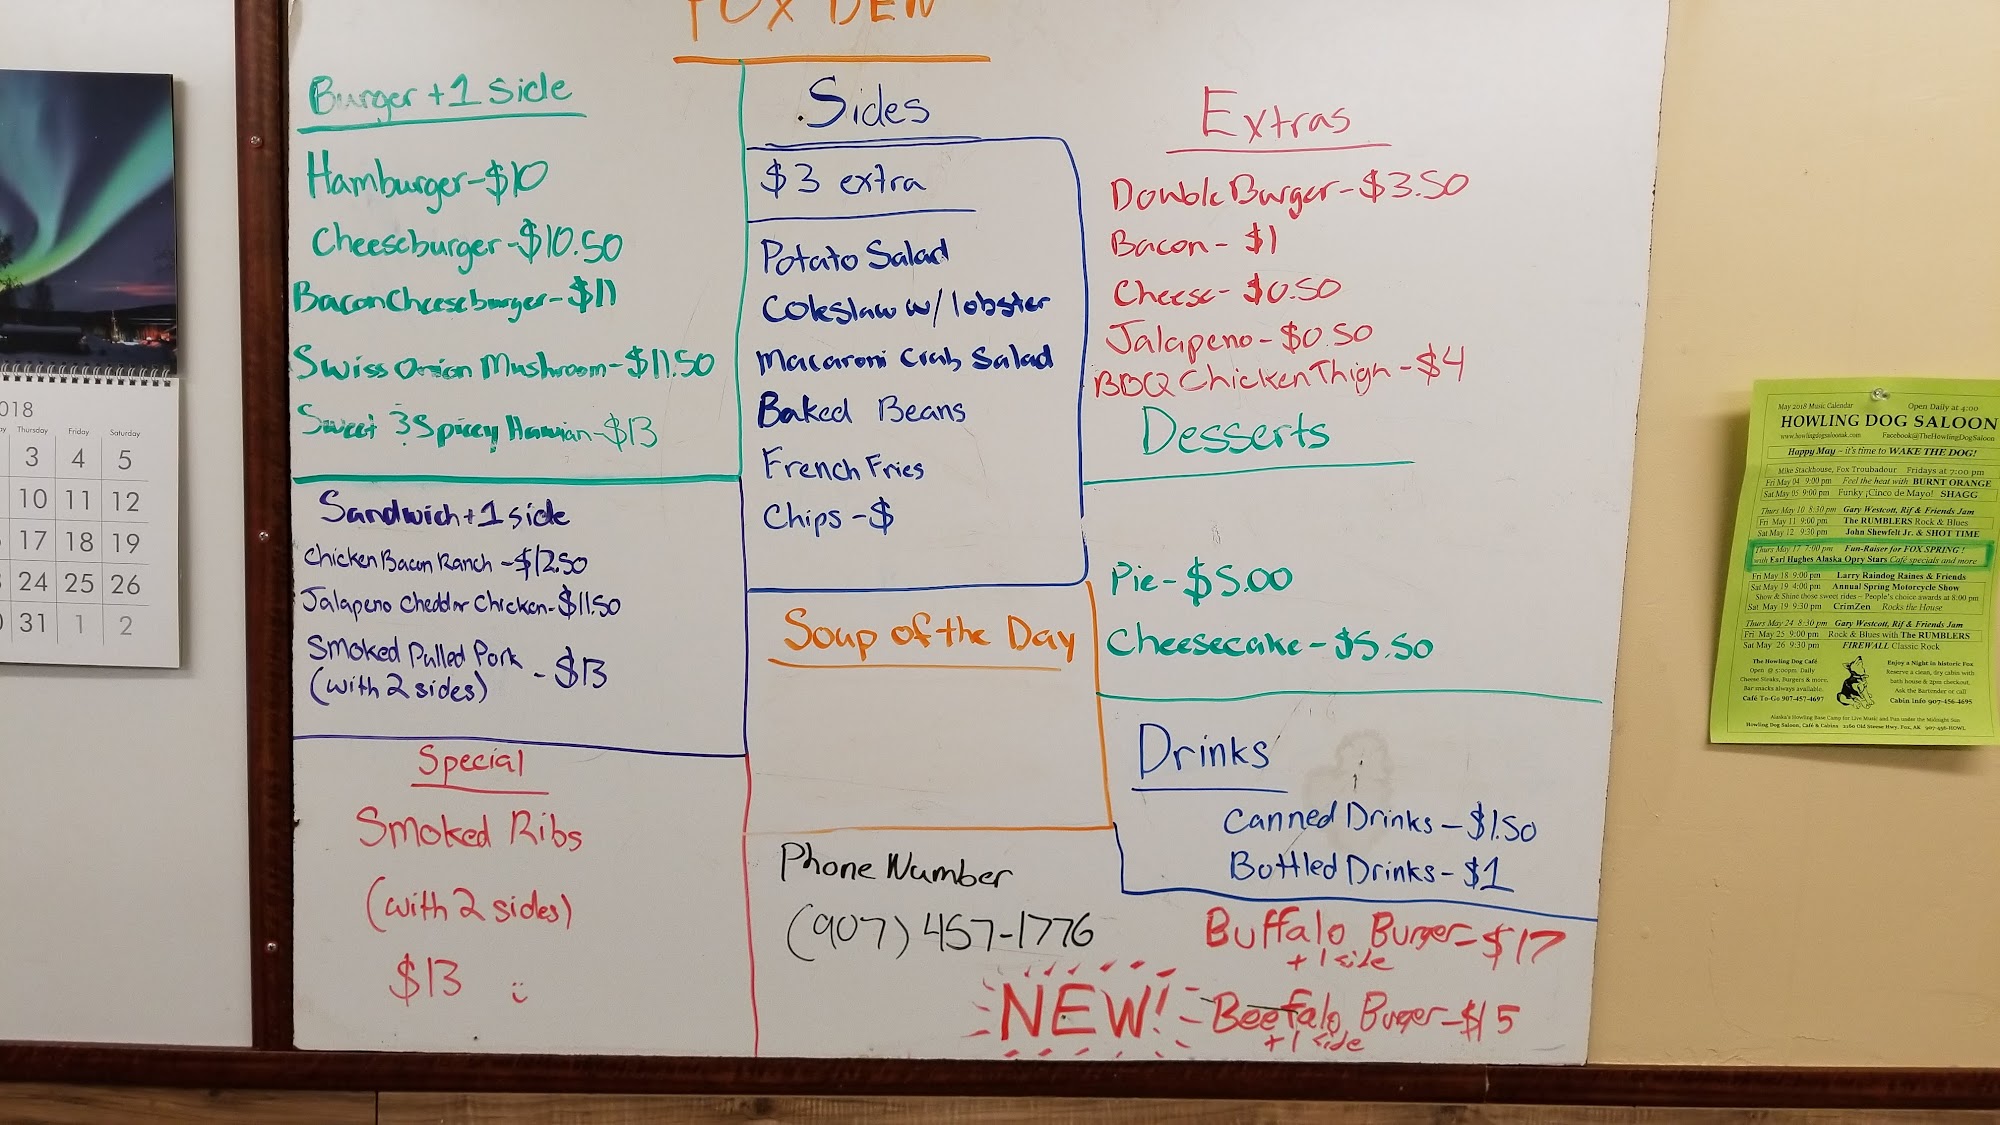 FOX DEN
Burger + 1 Side
Hamburger - $10
Cheeseburger - $10.50
Bacon Cheeseburger - $11
Swiss Onion Mushroom - $11.50
Sweet & Spicy Hawian - $13
Sandwich + 1 side
Chicken Bacon Ranch - $12.50
Jalapeno Cheddar Chicken - $11.50
Smoked Pulled Pork - $13
(with 2 sides)
Special
Smoked Ribs
(with 2 sides)
$13
Sides
$3 extra
Potato Salad
Coleslaw w/ lobster
Macaroni Crab Salad
Baked Beans
French Fries
Chips - $
Soup of the Day
Phone Number
(907) 457-1776
Extras
Double Burger - $3.50
Bacon - $1
Cheese - $0.50
Jalapeno - $0.50
BBQ Chicken Thigh - $4
Desserts
Pie - $5.00
Cheesecake - $5.50
Drinks
Canned Drinks - $1.50
Bottled Drinks - $1
Buffalo Burger - $17
+ 1 side
NEW! - Beefalo Burger - $15
+ 1 side
018
Thursday Friday Saturday
3 4 5
10 11 12
17 18 19
24 25 26
31 1 2
May 2018 Music Calendar Open Daily at 4:00
HOWLING DOG SALOON
www.howlingdogsaloonak.com Facebook@TheHowlingDogSaloon
Happy May ~ it's time to WAKE THE DOG!
Mike Stackhouse, Fox Troubadour Fridays at 7:00 pm
Fri May 04 9:00 pm Feel the heat with BURNT ORANGE
Sat May 05 9:00 pm Funky ¡Cinco de Mayo! SHAGG
Thurs May 10 8:30 pm Gary Westcott, Rif & Friends Jam
Fri May 11 9:00 pm The RUMBLERS Rock & Blues
Sat May 12 9:30 pm John Shewfelt Jr. & SHOT TIME
Thurs May 17 7:00 pm Fun-Raiser for FOX SPRING!
with Earl Hughes Alaska Opry Stars Café specials and more
Fri May 18 9:00 pm Larry Raindog Raines & Friends
Sat May 19 4:00 pm Annual Spring Motorcycle Show
Show & Shine those sweet rides ~ People's choice awards at 8:00 pm
Sat May 19 9:30 pm CrimZen Rocks the House
Thurs May 24 8:30 pm Gary Westcott, Rif & Friends Jam
Fri May 25 9:00 pm Rock & Blues with The RUMBLERS
Sat May 26 9:30 pm FIREWALL Classic Rock
The Howling Dog Café
Open @ 5:00pm Daily
Cheese Steaks, Burgers & more,
Bar snacks always available.
Café To-Go 907-457-4697
Enjoy a Night in historic Fox
Reserve a clean, dry cabin with
bath house & 2pm checkout.
Ask the Bartender or call
Cabin Info 907-456-4695
Alaska's Howling Base Camp for Live Music and Fun under the Midnight Sun
Howling Dog Saloon, Café & Cabins 2160 Old Steese Hwy, Fox, AK 907-456-HOWL